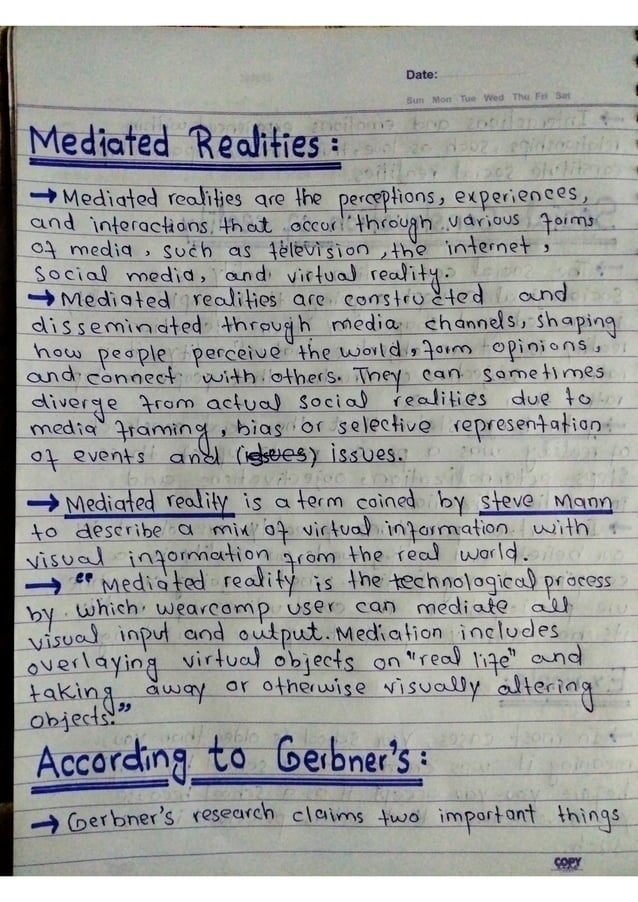 Date:
Sun Mon Tue Wed Thu Fri Sat
Mediated Realities:
→ Mediated realities are the perceptions, experiences,
and interactions that occur through various forms
of media, such as television, the internet,
social media, and virtual reality.
→ Mediated realities are constructed and
disseminated through media channels, shaping
how people perceive the world, form opinions,
and connect with others. They can sometimes
diverge from actual social realities due to
media framing, bias or selective representation
of events and (issues) issues.
→ Mediated reality is a term coined by steve Mann
to describe a mix of virtual information with
visual information from the real world.
→ "Mediated reality is the technological process
by which wearcomp user can mediate all
visual input and output. Mediation includes
overlaying virtual objects on "real life" and
taking away or otherwise visually altering
objects."
According to Gerbner's:
→ Gerbner's research claims two important things
COPY